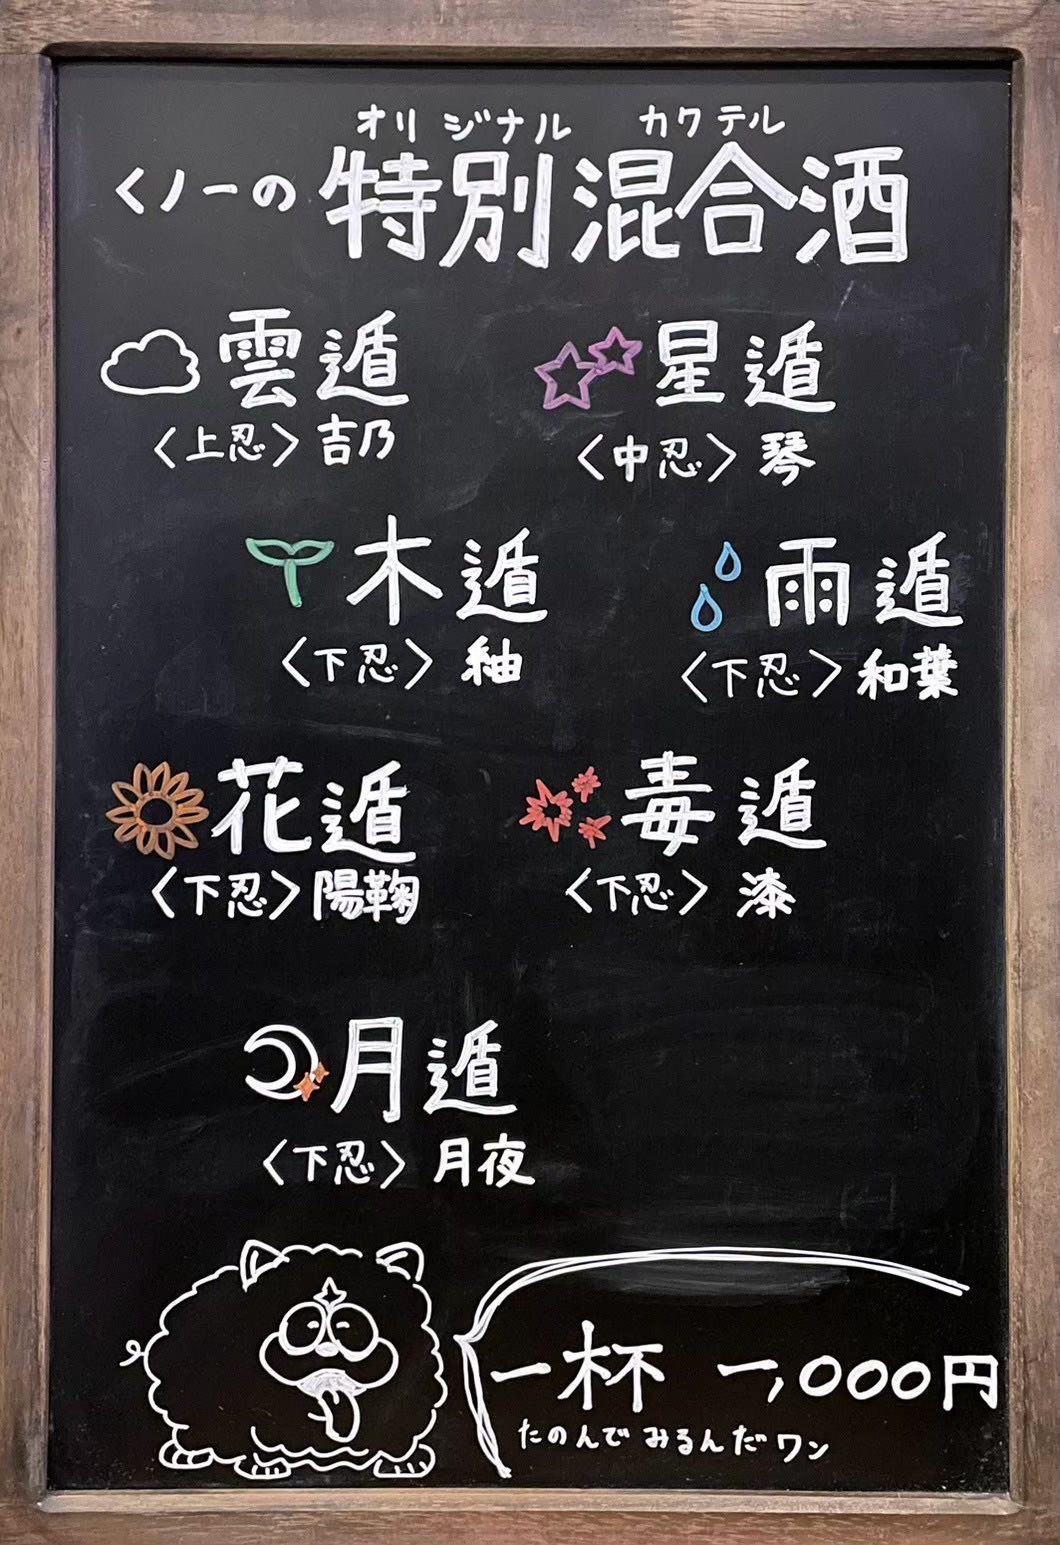 オリジナル カクテル
くノ一の特別混合酒
雲遁 星遁
〈上忍〉吉乃 〈中忍〉琴
木遁 雨遁
〈下忍〉紬 〈下忍〉和葉
花遁 毒遁
〈下忍〉陽鞠 〈下忍〉漆
月遁
〈下忍〉月夜
一杯 一,000円
たのんでみるんだワン